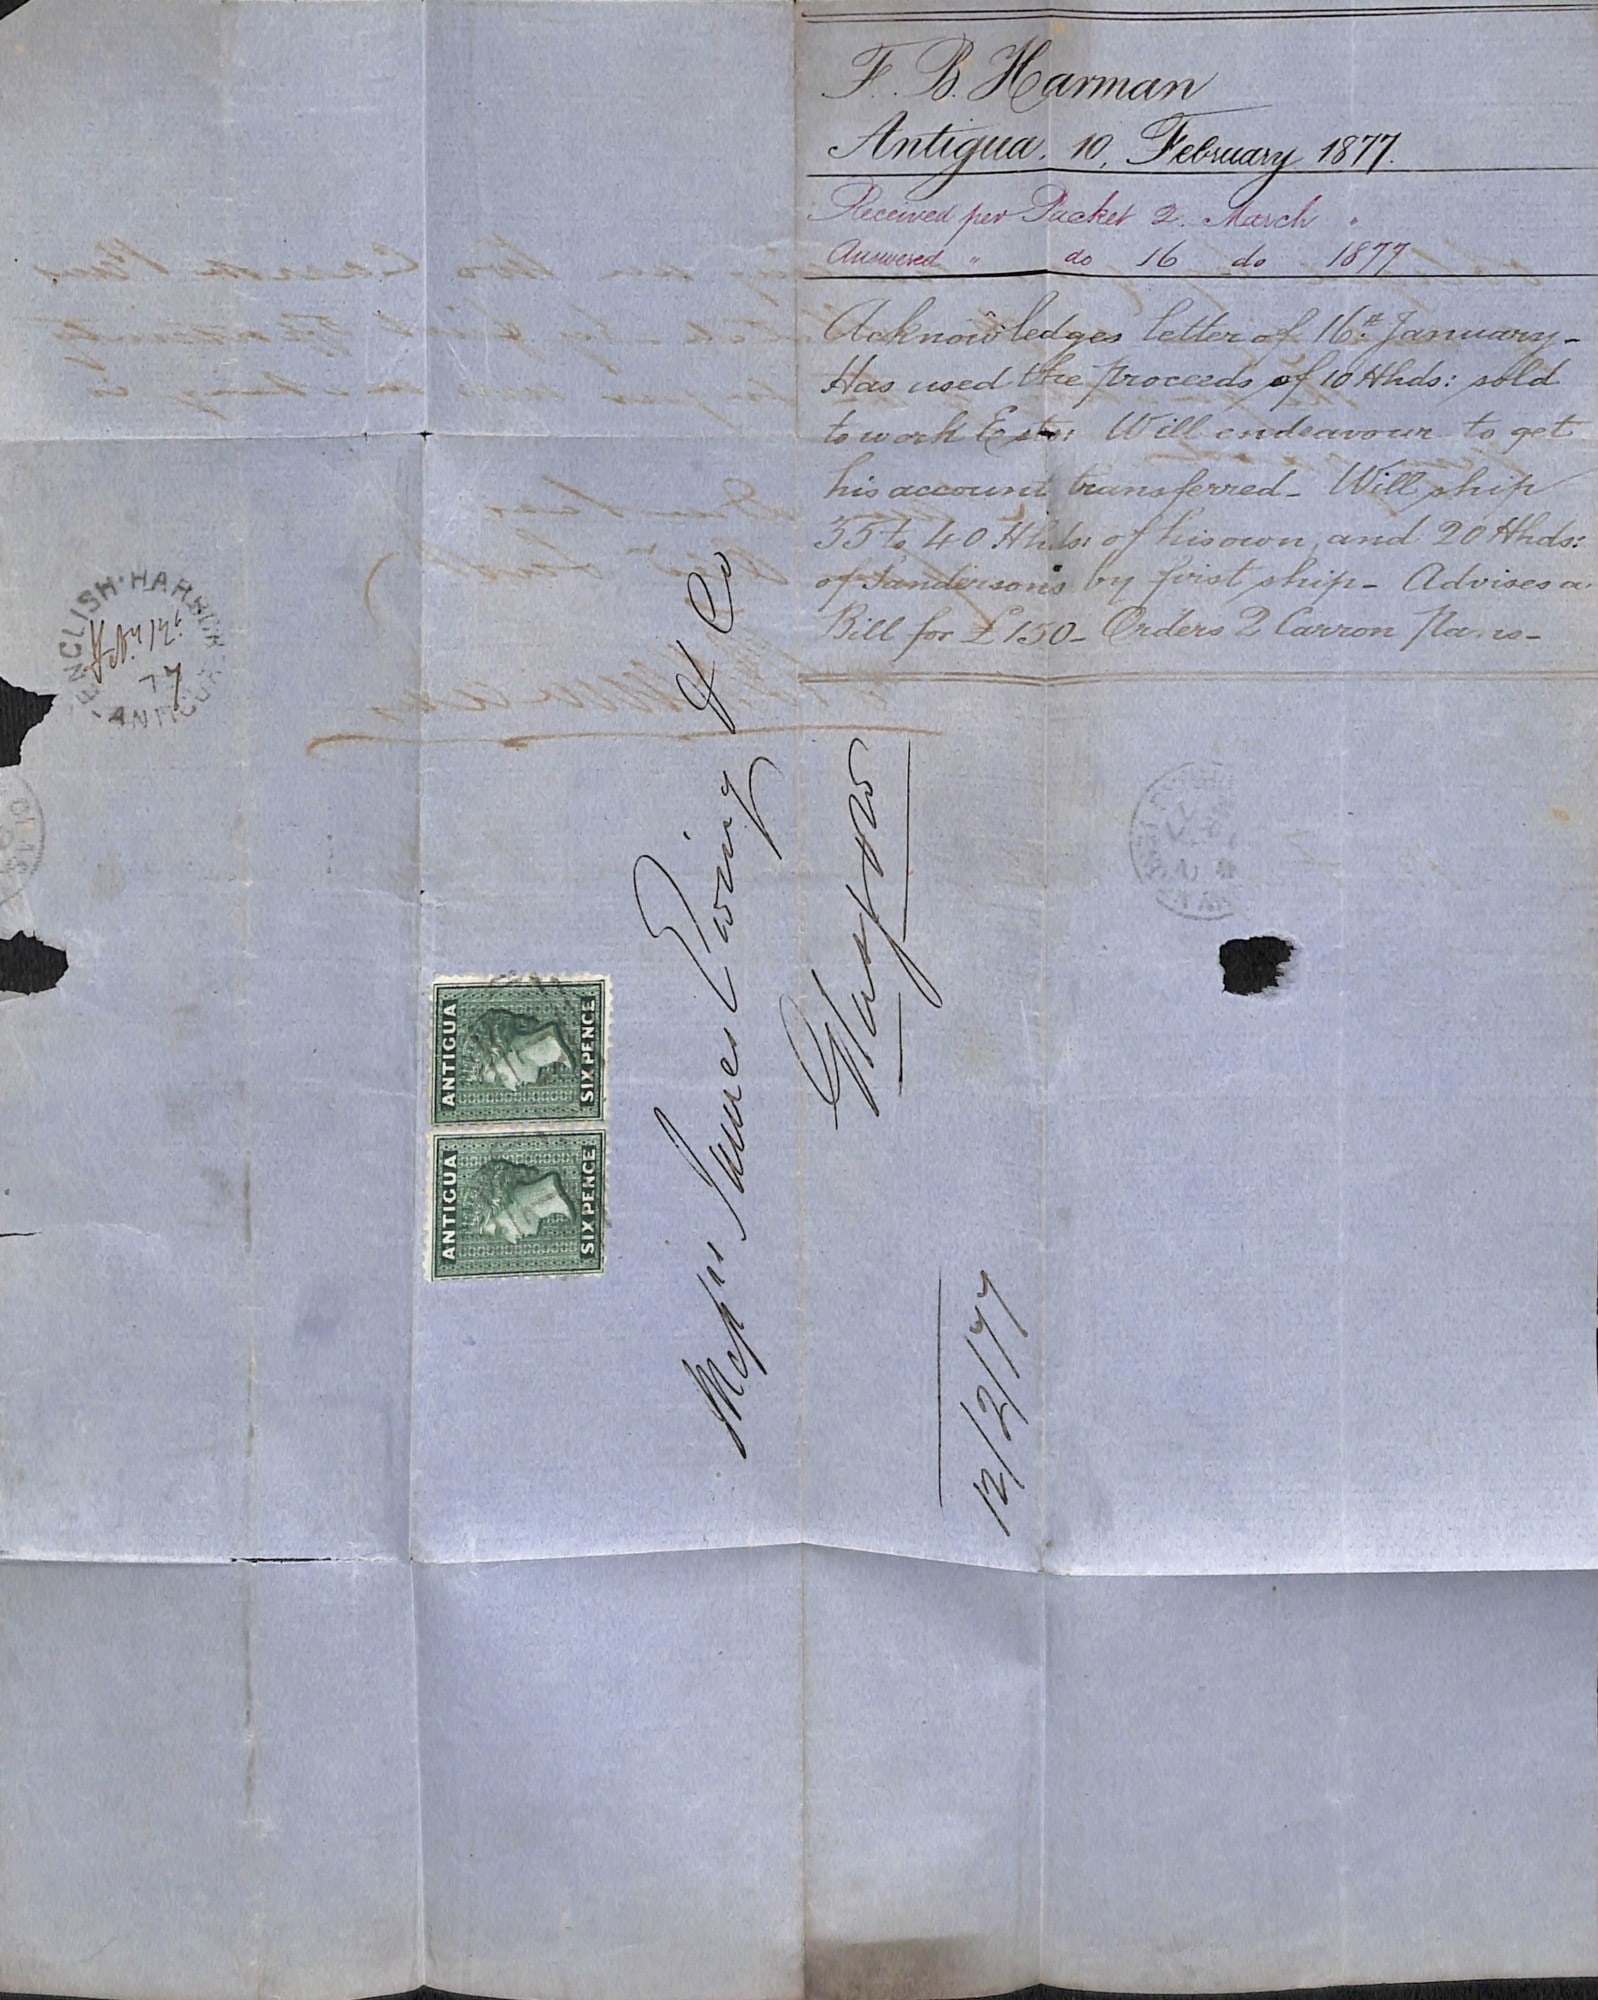 F. B. Harman
Antigua. 10, February 1877.
Received per Packet 2. March "
Answered " do 16 do 1877
Acknowledges letter of 16th January_
Has used the proceeds of 10 Hhds: sold
to work Este: Will endeavour to get
his account transferred_ Will ship
35 to 40 Hhds: of his own, and 20 Hhds:
of Sanderson's by first ship_ Advises a
Bill for £150_ Orders 2 Carron Pans_
ENGLISH·HARBOUR
Feby 12
77
ANTIGUA
ANTIGUA
SIX PENCE
ANTIGUA
SIX PENCE
Messrs James Ewing & Co
Glasgow
12/2/77